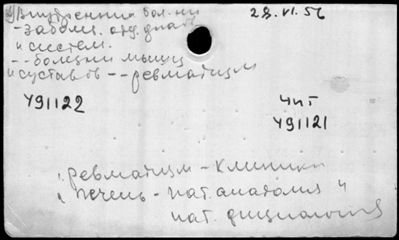 Внутренни бол. ни 28.VI.56
- забол. отд. диат
и систем.
-- болезни мышц
и суставов -- ревматизм
491122 Чит
491121
ревматизм - клиника
печень - пат. анатомия и
пат. физиология